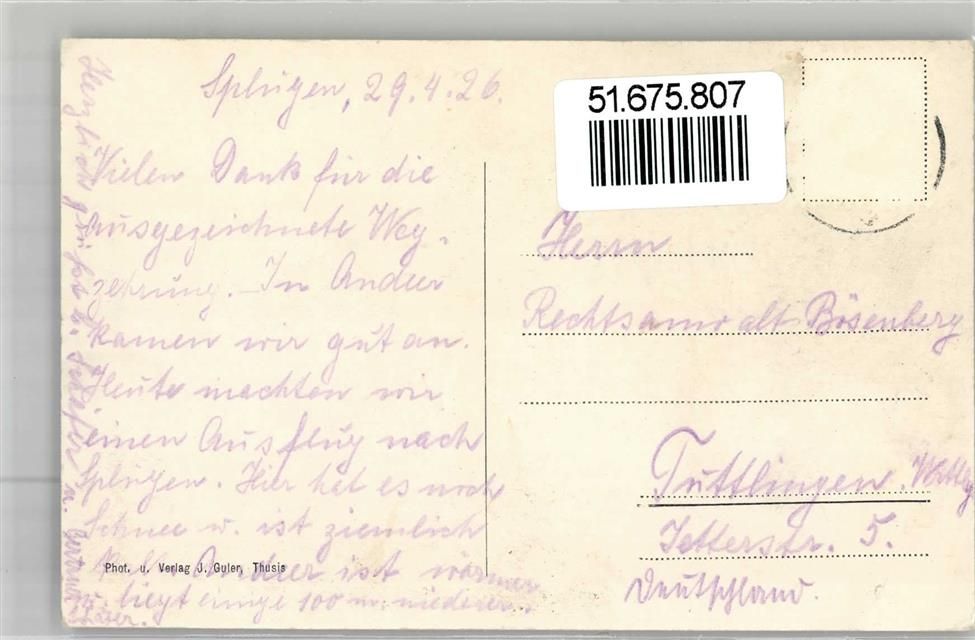 Splügen, 29.4.26.
Vielen Dank für die
ausgezeichnete Weg-
zehrung. In Andeer
kamen wir gut an.
Heute machten wir
einen Ausflug nach
Splügen. Hier hat es noch
Schnee u. ist ziemlich
kalt. Andeer ist wärmer
u. liegt einige 100 m. niederer.
Herzlich grüßt
Phot. u. Verlag J. Guler, Thusis
51.675.807
Herrn
Rechtsanwalt Bösenberg
Tuttlingen. Wttbg
Jetterstr. 5.
Deutschland.